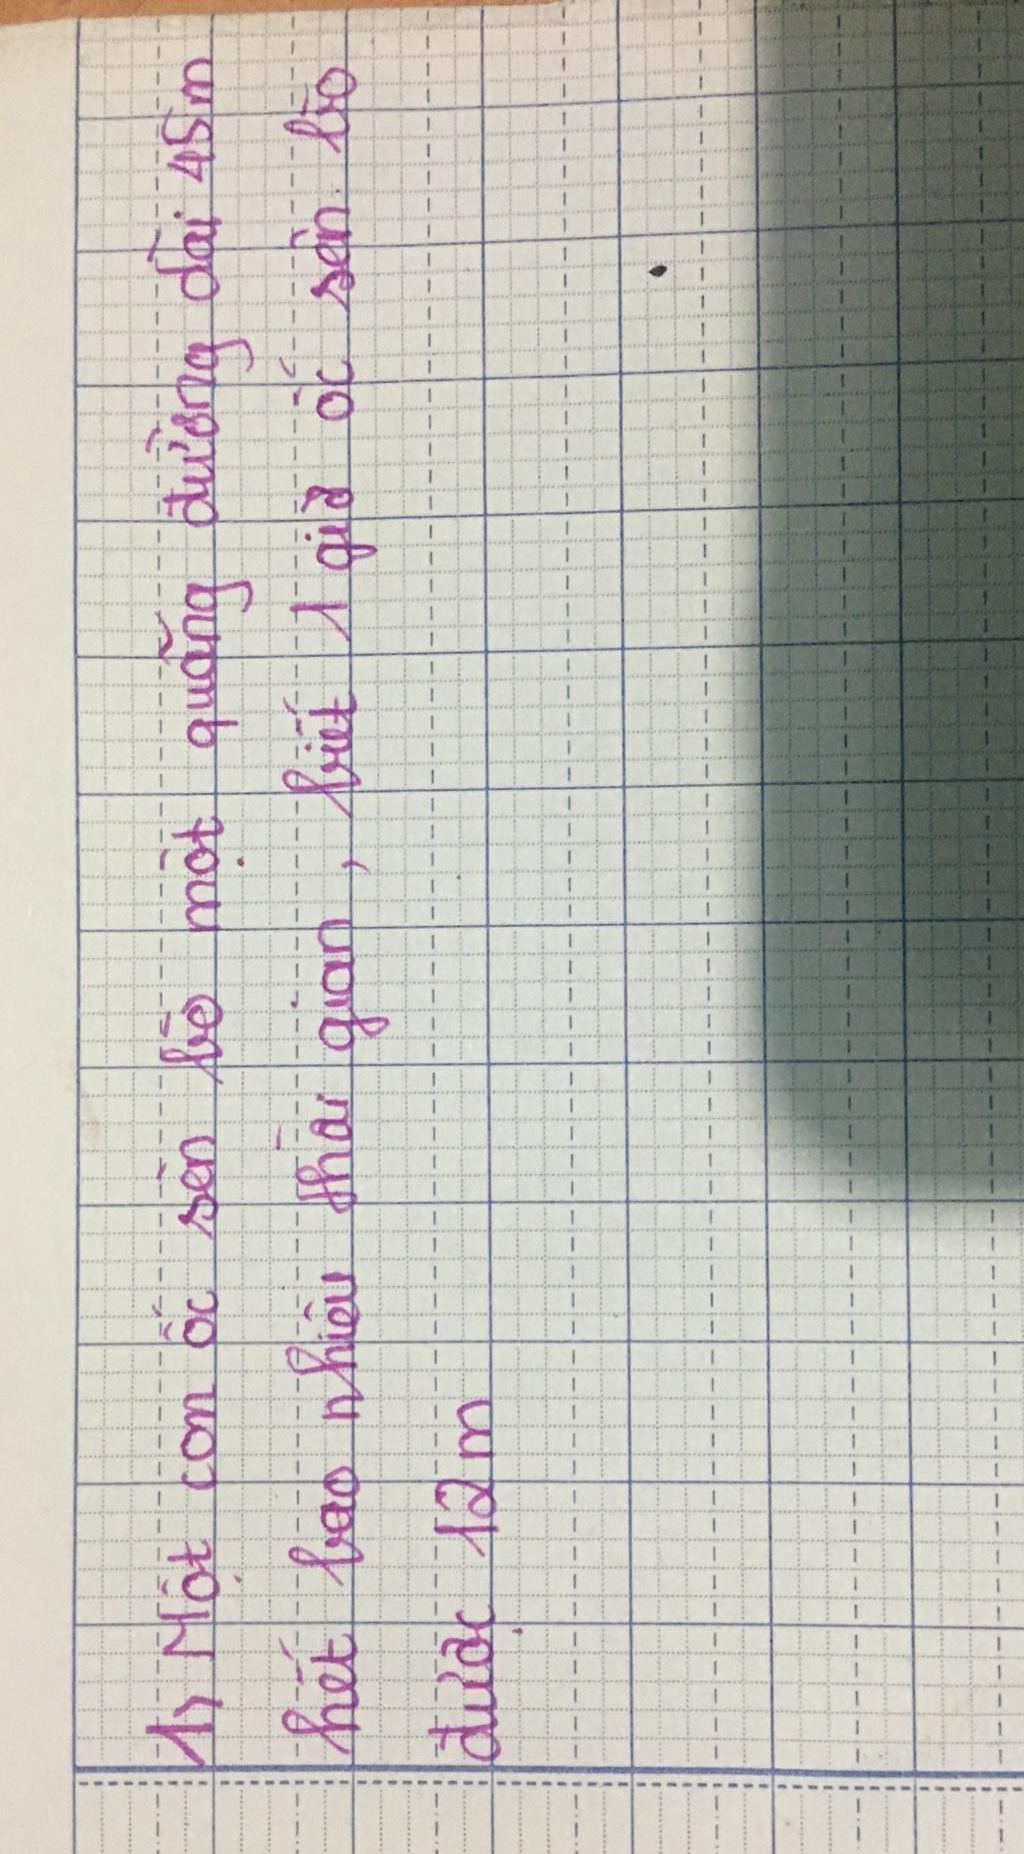 1, Một con ốc sên bò một quãng đường dài 45m
hết bao nhiêu thời gian, biết 1 giờ ốc sên bò
được 12m